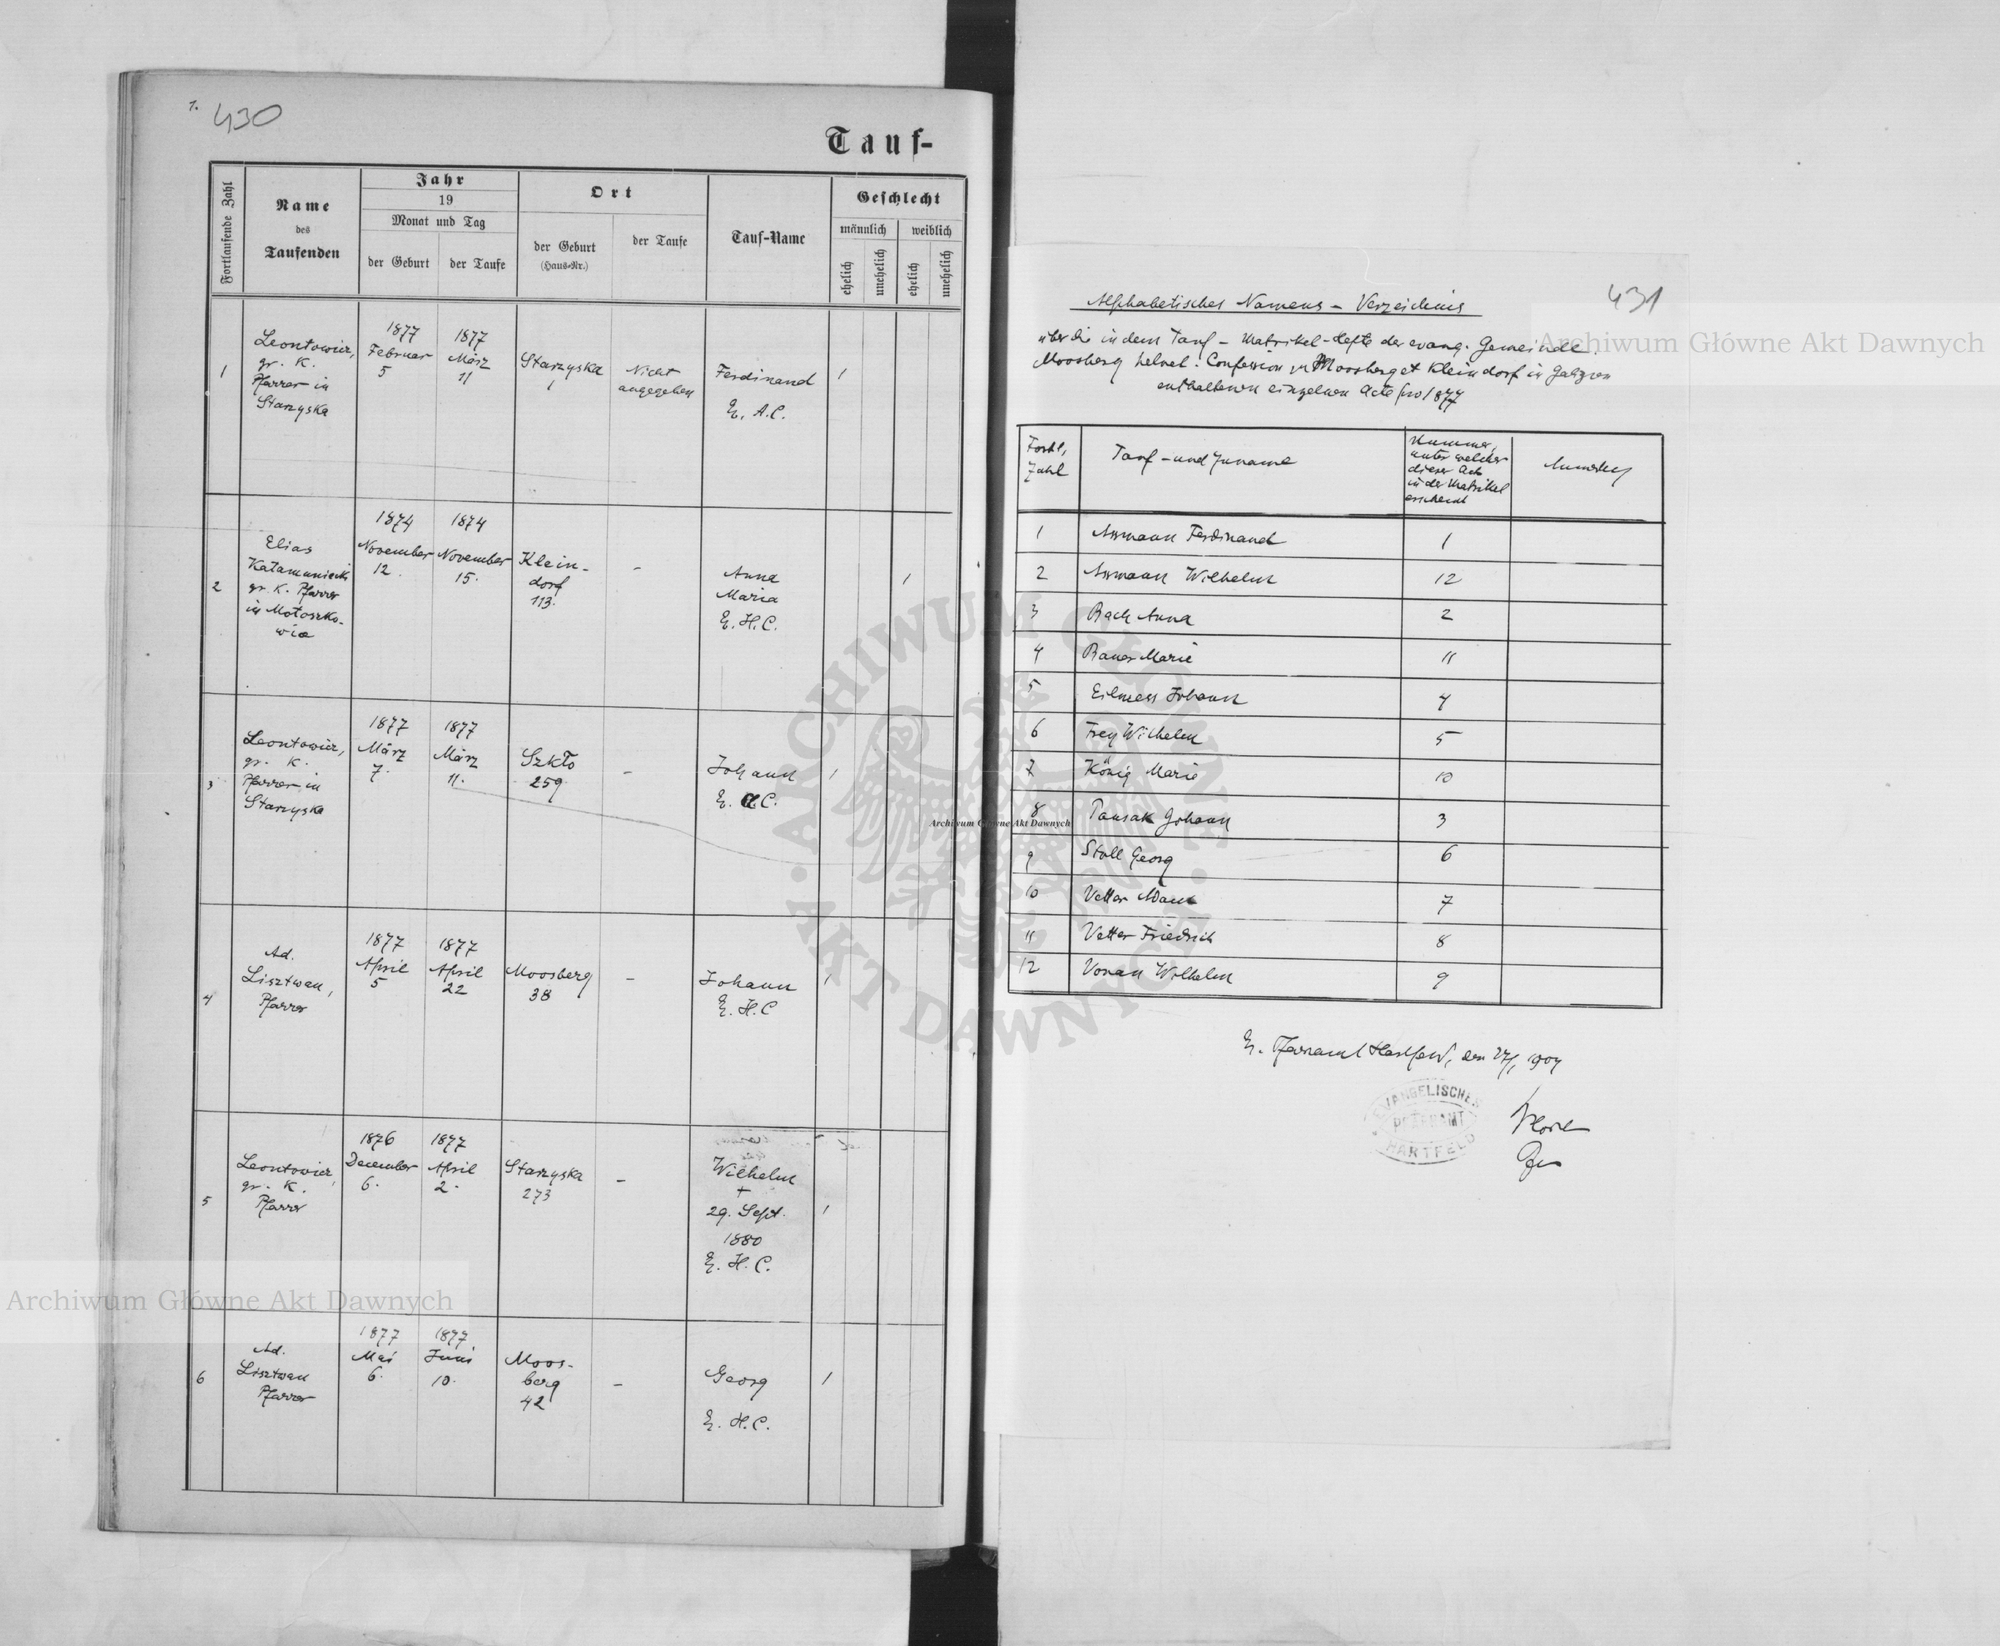 1.
430
Tauf-
Fortlaufende Zahl
Name
des
Taufenden
Jahr
19
Monat und Tag
der Geburt
der Taufe
Ort
der Geburt
(Haus-Nr.)
der Taufe
Tauf-Name
Geschlecht
männlich
weiblich
ehelich
unehelich
ehelich
unehelich
1
Leontowicz,
gr. K.
Pfarrer in
Starzyska
1877
Februar
5
1877
März
11
Starzyska
1
Nicht
angegeben
Ferdinand
E. A.C.
1
2
Elias
gr. K. Pfarrer
in Motoszko-
wice
1874
November
12.
1874
November
15.
Klein-
dorf
113.
-
Anna
Maria
E. H.C.
1
3
Leontowicz,
gr. K.
Pfarrer in
Starzyska
1877
März
7.
1877
März
11.
Szkło
259
-
Johann
E. A.C.
1
4
Ad.
Lisztwan,
Pfarrer
1877
April
5
1877
April
22
Moosberg
38
-
Johann
E. H.C
1
5
Leontowicz,
gr. K.
Pfarrer
1876
December
6.
1877
April
2.
Starzyska
273
-
Wilhelm
+
29. Sept.
1880
E. H.C.
1
6
Ad.
Lisztwan
Pfarrer
1877
Mai
6.
1877
Juni
10.
Moos-
berg
42
-
Georg
E. H.C.
1
431
Alphabetisches Namens-Verzeichnis
über die in dem Tauf-Matrikel-Hefte der evang. Gemeinde
Moosberg helvet. Confession in Moosberg et Kleindorf in Galizien
enthaltenen einzelnen Acte pro 1877
Fortl.
Zahl
Tauf- und Zuname
Nummer,
unter welcher
dieser Act
in der Matrikel
erscheint
Anmerkg
1 Assmann Ferdinand 1
2 Assmann Wilhelm 12
3 Bach Anna 2
4 Bauer Marie 11
5 Eilmess Johann 4
6 Frey Wilhelm 5
7 König Marie 10
8 Pausak Johann 3
9 Stoll Georg 6
10 Vetter Adam 7
11 Vetter Friedrich 8
12 Vonau Wilhelm 9
E. Pfarramt Hartfeld, den 27/1 1904
EVANGELISCHES
PFARRAMT
HARTFELD
Archiwum Główne Akt Dawnych
Archiwum Główne Akt Dawnych
Archiwum Główne Akt Dawnych
ARCHIWUM GŁÓWNE
AKT DAWNYCH